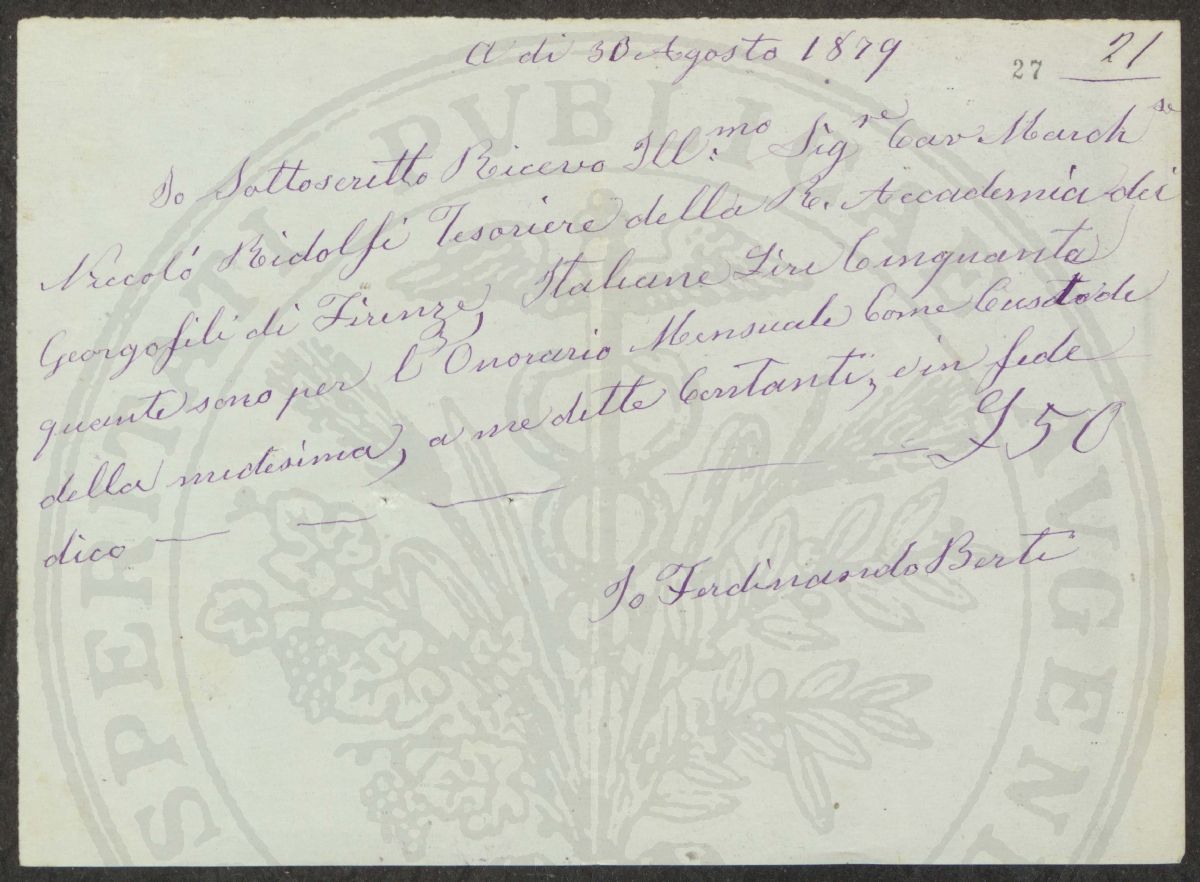 A di 30 Agosto 1879
27 21
Io Sottoscritto Ricevo Ill.mo Sigre Cav March se
Niccoló Ridolfi Tesoriere della R. Accademia dei
Georgofili di Firenze, Italiane Lire Cinquanta
quante sono per l'Onorario Mensuale Come Custode
della medesima, a me dette Contanti, e in fede
dico — — — — — £50
Io Ferdinando Berti
PROSPERITATI PVBLICAE AVGENDAE